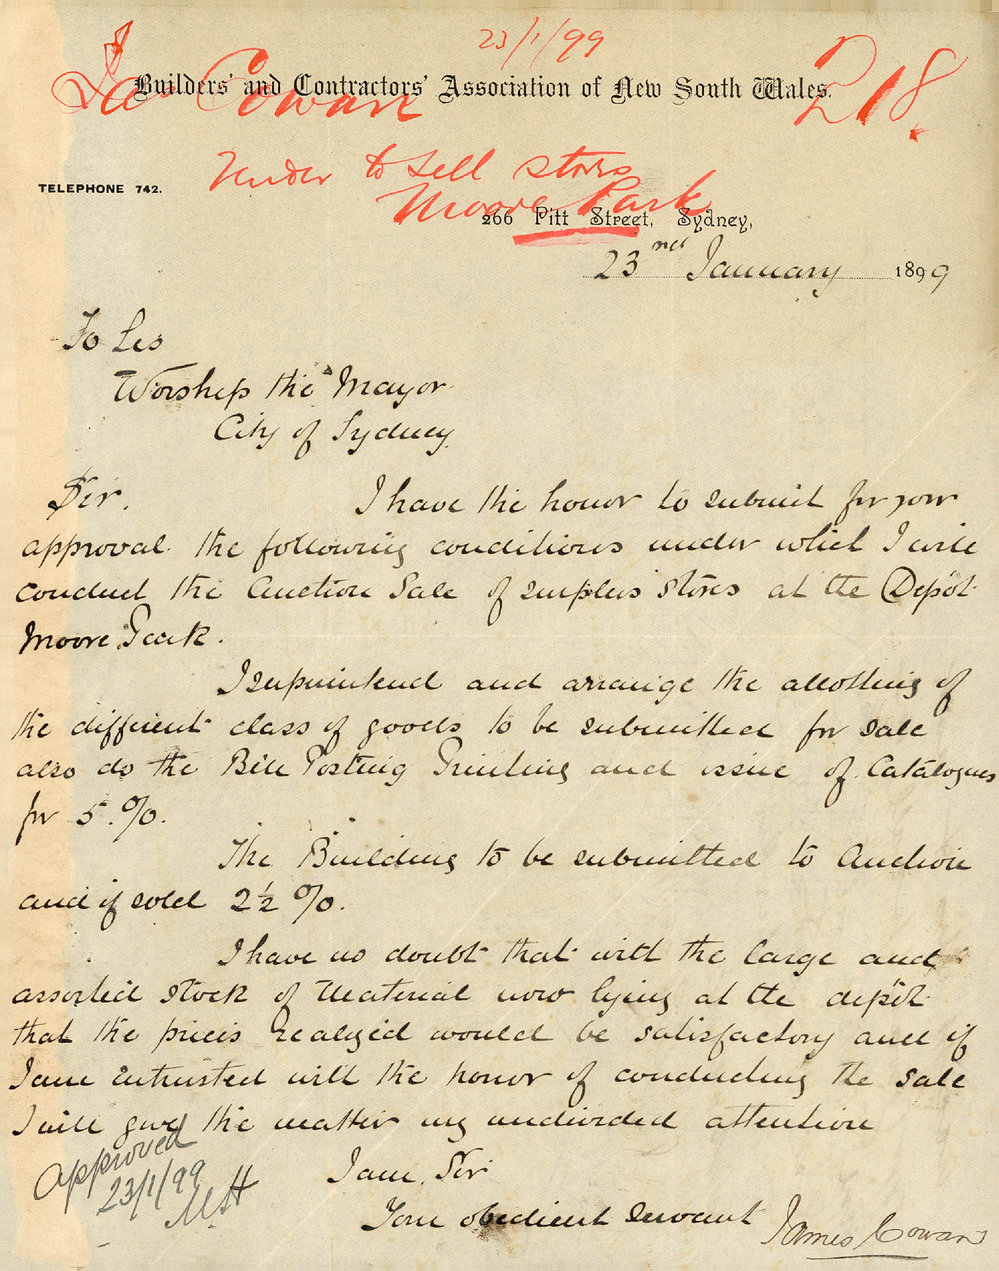 23/1/99
Jas Cowan
218.
Builders' and Contractors' Association of New South Wales.
Tender to sell stores
Moore Park
TELEPHONE 742.
266 Pitt Street, Sydney,
23rd January 1899
To His
Worship the Mayor
City of Sydney
Sir. I have the honor to submit for your
approval the following conditions under which I will
conduct the Auction Sale of surplus Stores at the Depôt
Moore Park.
I superintend and arrange the allotting of
the different class of goods to be submitted for sale
also do the Bill Posting Printing and issue of Catalogues
for 5.%.
The Building to be submitted to Auction
and if sold 2½ %.
I have no doubt that with the large and
assorted stock of Material now lying at the depôt
that the prices realized would be satisfactory and if
I am entrusted with the honor of conducting the sale
I will give the matter my undivided attention
Approved
23/1/99
MH
I am, Sir
Your obedient servant
James Cowan